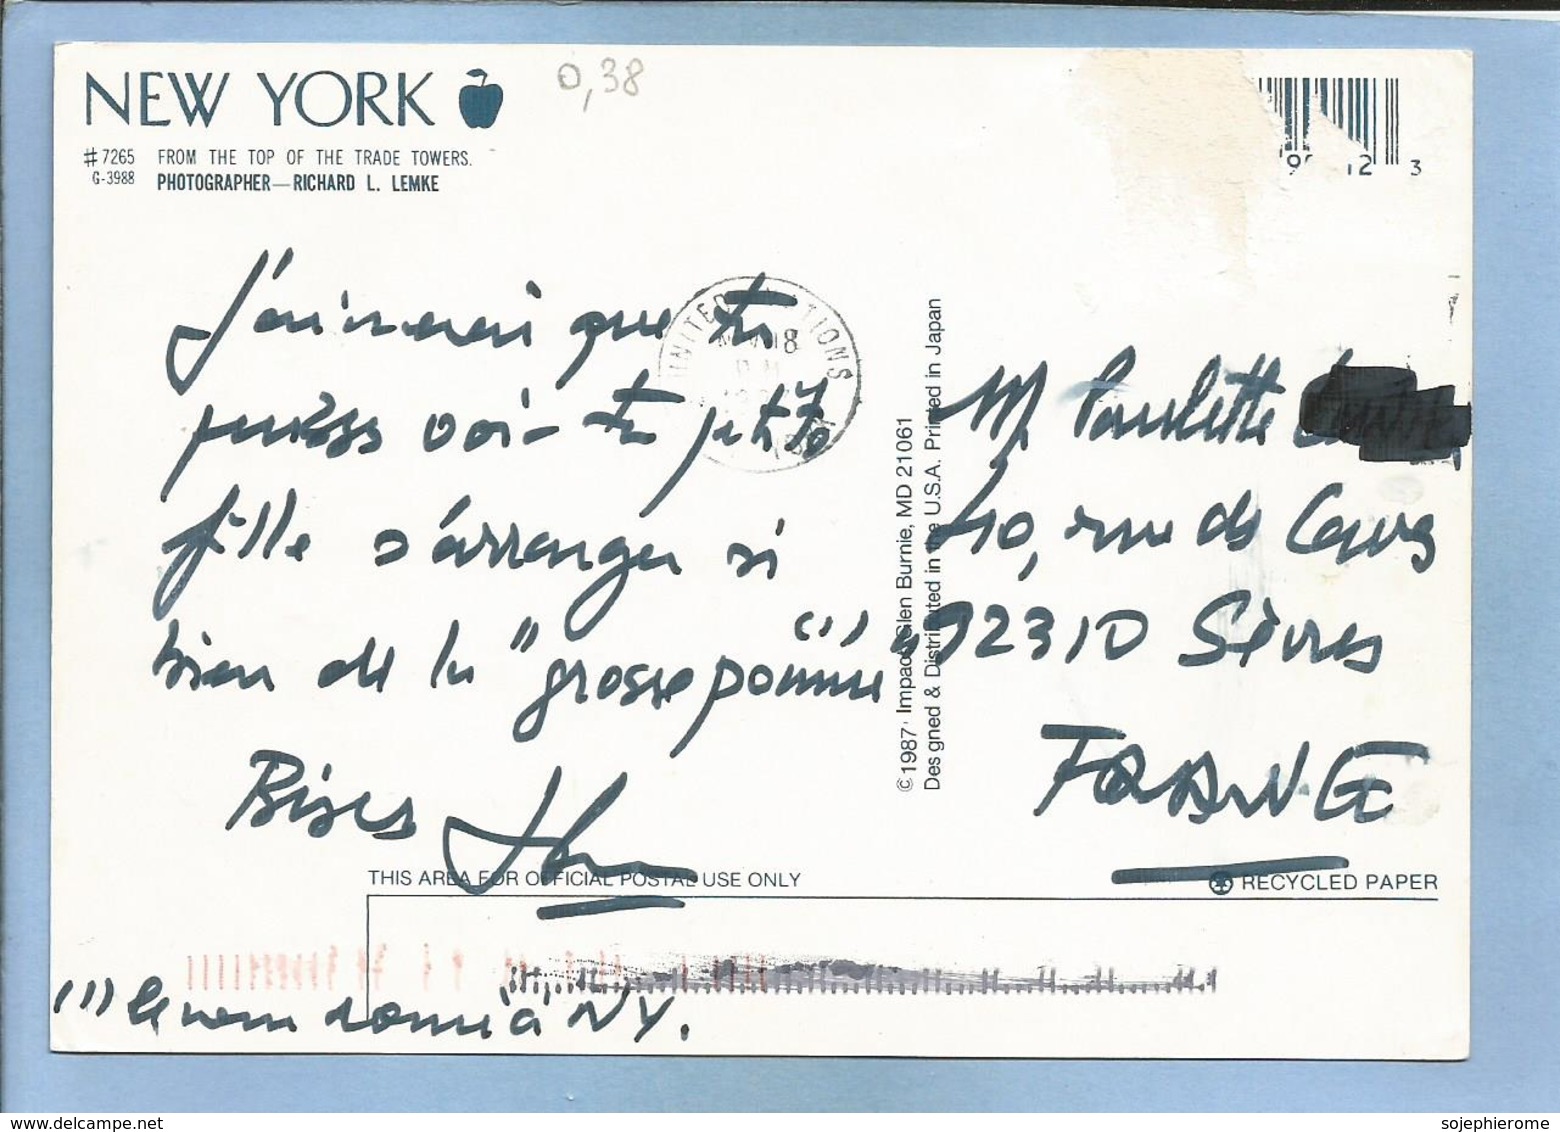 NEW YORK
0,38
# 7265 FROM THE TOP OF THE TRADE TOWERS.
G-3988 PHOTOGRAPHER—RICHARD L. LEMKE
3
UNITED NATIONS
J'aimerai que tu
puisses voir ta petite
fille s'arranger si
bien de la "grosse pomme" (1)
Bises
M. Paulette
40, rue des Caves
92310 Sèvres
FRANCE
© 1987 Impact, Glen Burnie, MD 21061
Designed & Distributed in the U.S.A. Printed in Japan
THIS AREA FOR OFFICIAL POSTAL USE ONLY
RECYCLED PAPER
(1) le nom donné à NY.
sojephierome